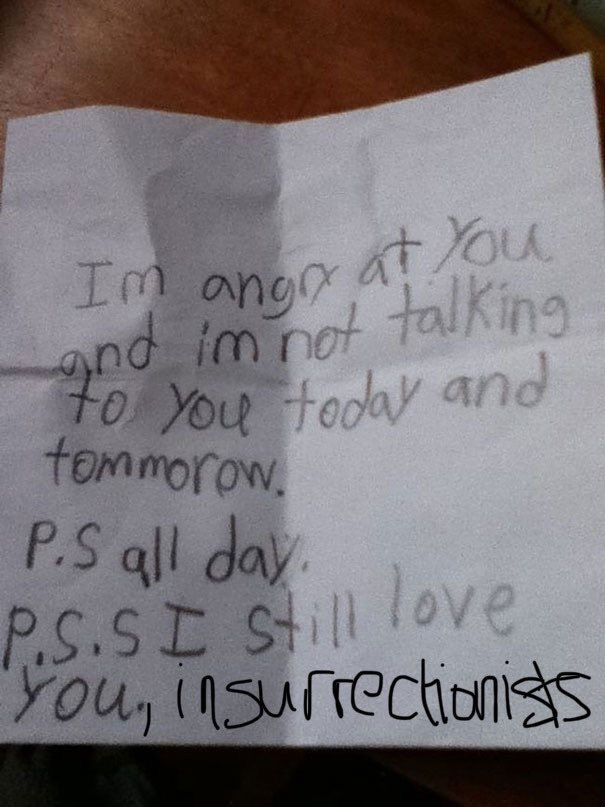 Im angry at you
and im not talking
to you today and
tommorow.
P.S all day.
P.S.S I still love
you, insurrectionists